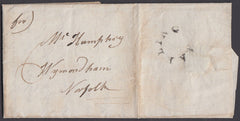 for
Mr Humphry
Wymondham
Norfolk